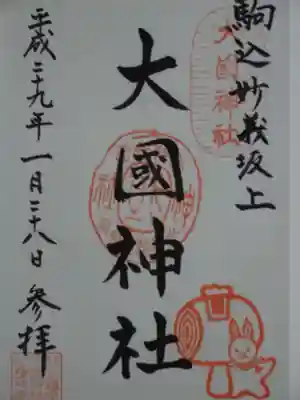 駒込妙義坂上
大國神社
大國神社
平成二十九年一月二十八日参拝